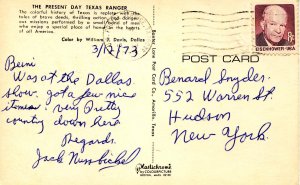 THE PRESENT DAY TEXAS RANGER
The colorful history of Texas is replete with the
tales of brave deeds, thrilling action, and danger-
ous missions performed by a small band of men
who enjoy a special place of honor in the hearts
of all America
Color by William J. Davis, Dallas
3/12/73
Beni
Was at the Dallas
show. got a few nice
items. very Pretty
country down here
Regards.
Jack
POST CARD
EISENHOWER·USA
Benard Snyder.
552 Warren St.
Hudson
New York.
Plastichrome
BY COLOURPICTURE
BOSTON, MASS. 02130